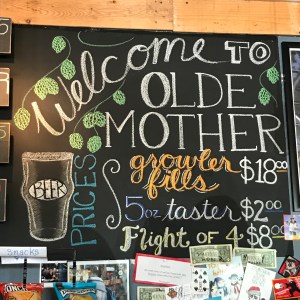 Welcome TO
OLDE
MOTHER
BEER
PRICES
growler
fills $18.00
5oz taster $2.00
Flight of 4 $8.00
Snacks